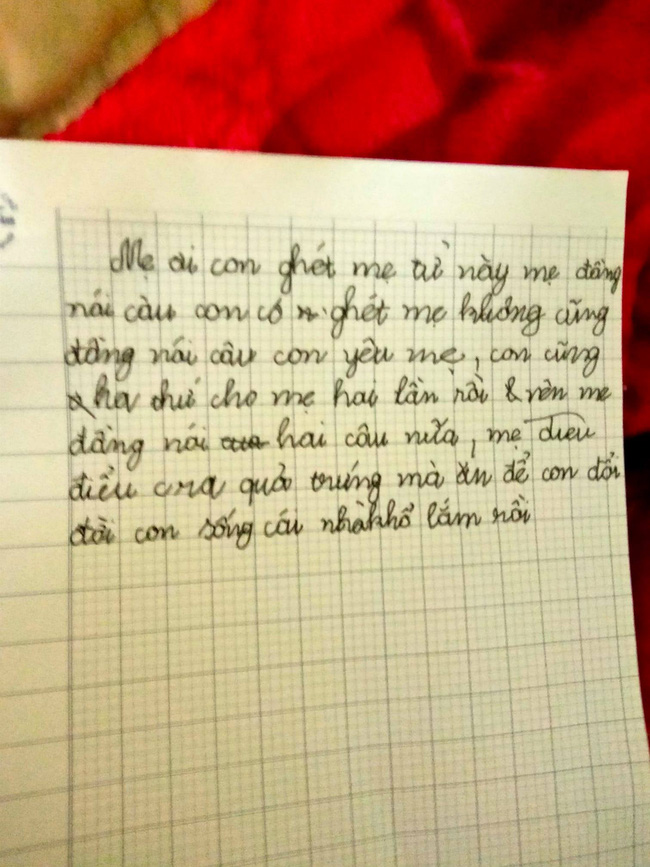 Mẹ ơi con ghét mẹ từ này mẹ đừng
nói câu con có ghét mẹ không cũng
đừng nói câu con yêu mẹ, con cũng
tha thứ cho mẹ hai lần rồi nên mẹ
đừng nói hai câu nữa, mẹ
điểu cra quả trứng mà ăn để con đổi
đời con sống cái nhà khổ lắm rồi